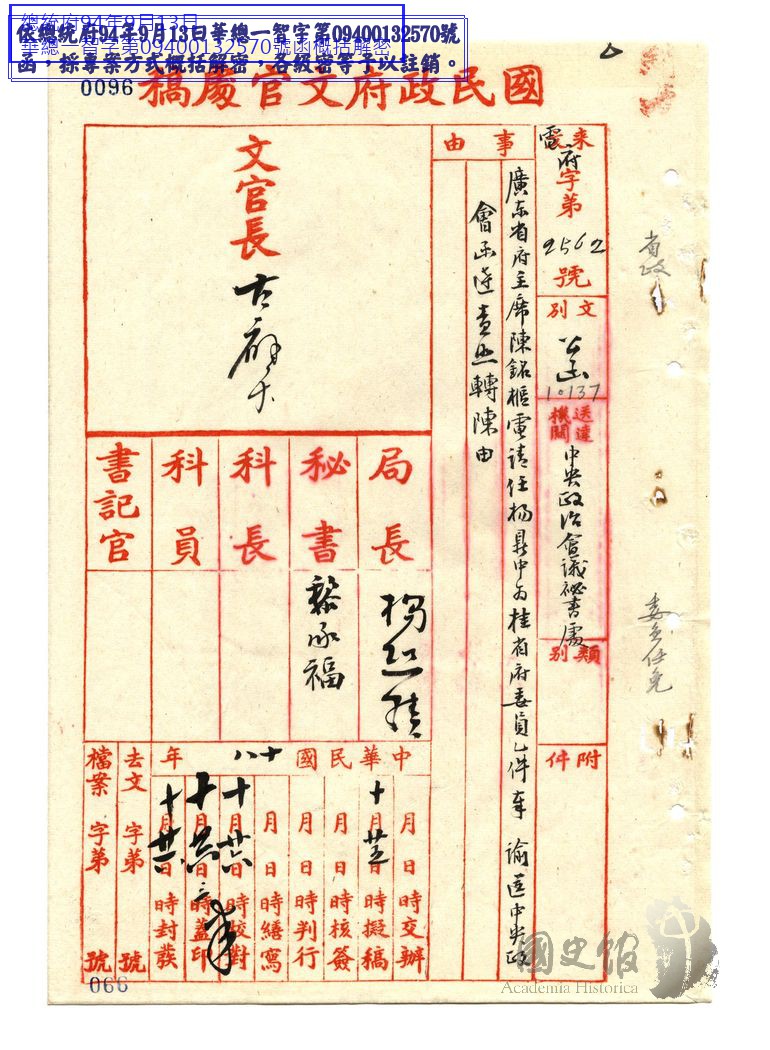 總統府94年9月13日
華總一智字第09400132570號函概括解密
依總統府94年9月13日華總一智字第09400132570號
函，採專案方式概括解密，各級密等予以註銷。
0096
國民政府文官處稿
來文
電 府字第
2562
號
文別
公函
10137
送達機關
中央政治會議祕書處
類別
附件
事由
廣东省府主席陳銘樞電請任楊鼎中为桂省府委員乙件奉 諭送中央政
會函達查照轉陳由
文官長
古應芬
局長
楊熙績
秘書
黎承福
科長
科員
書記官
中華民國十八年
月 日 時交辦
十月廿五日 時擬稿
月 日 時核簽
月 日 時判行
月 日 時繕寫
十月廿六日 時校對
十月廿六日 時蓋印
十月廿六日 時封發
去文 字第 號
檔案 字第 號
066
省政
委員任免
國史館
Academia Historica